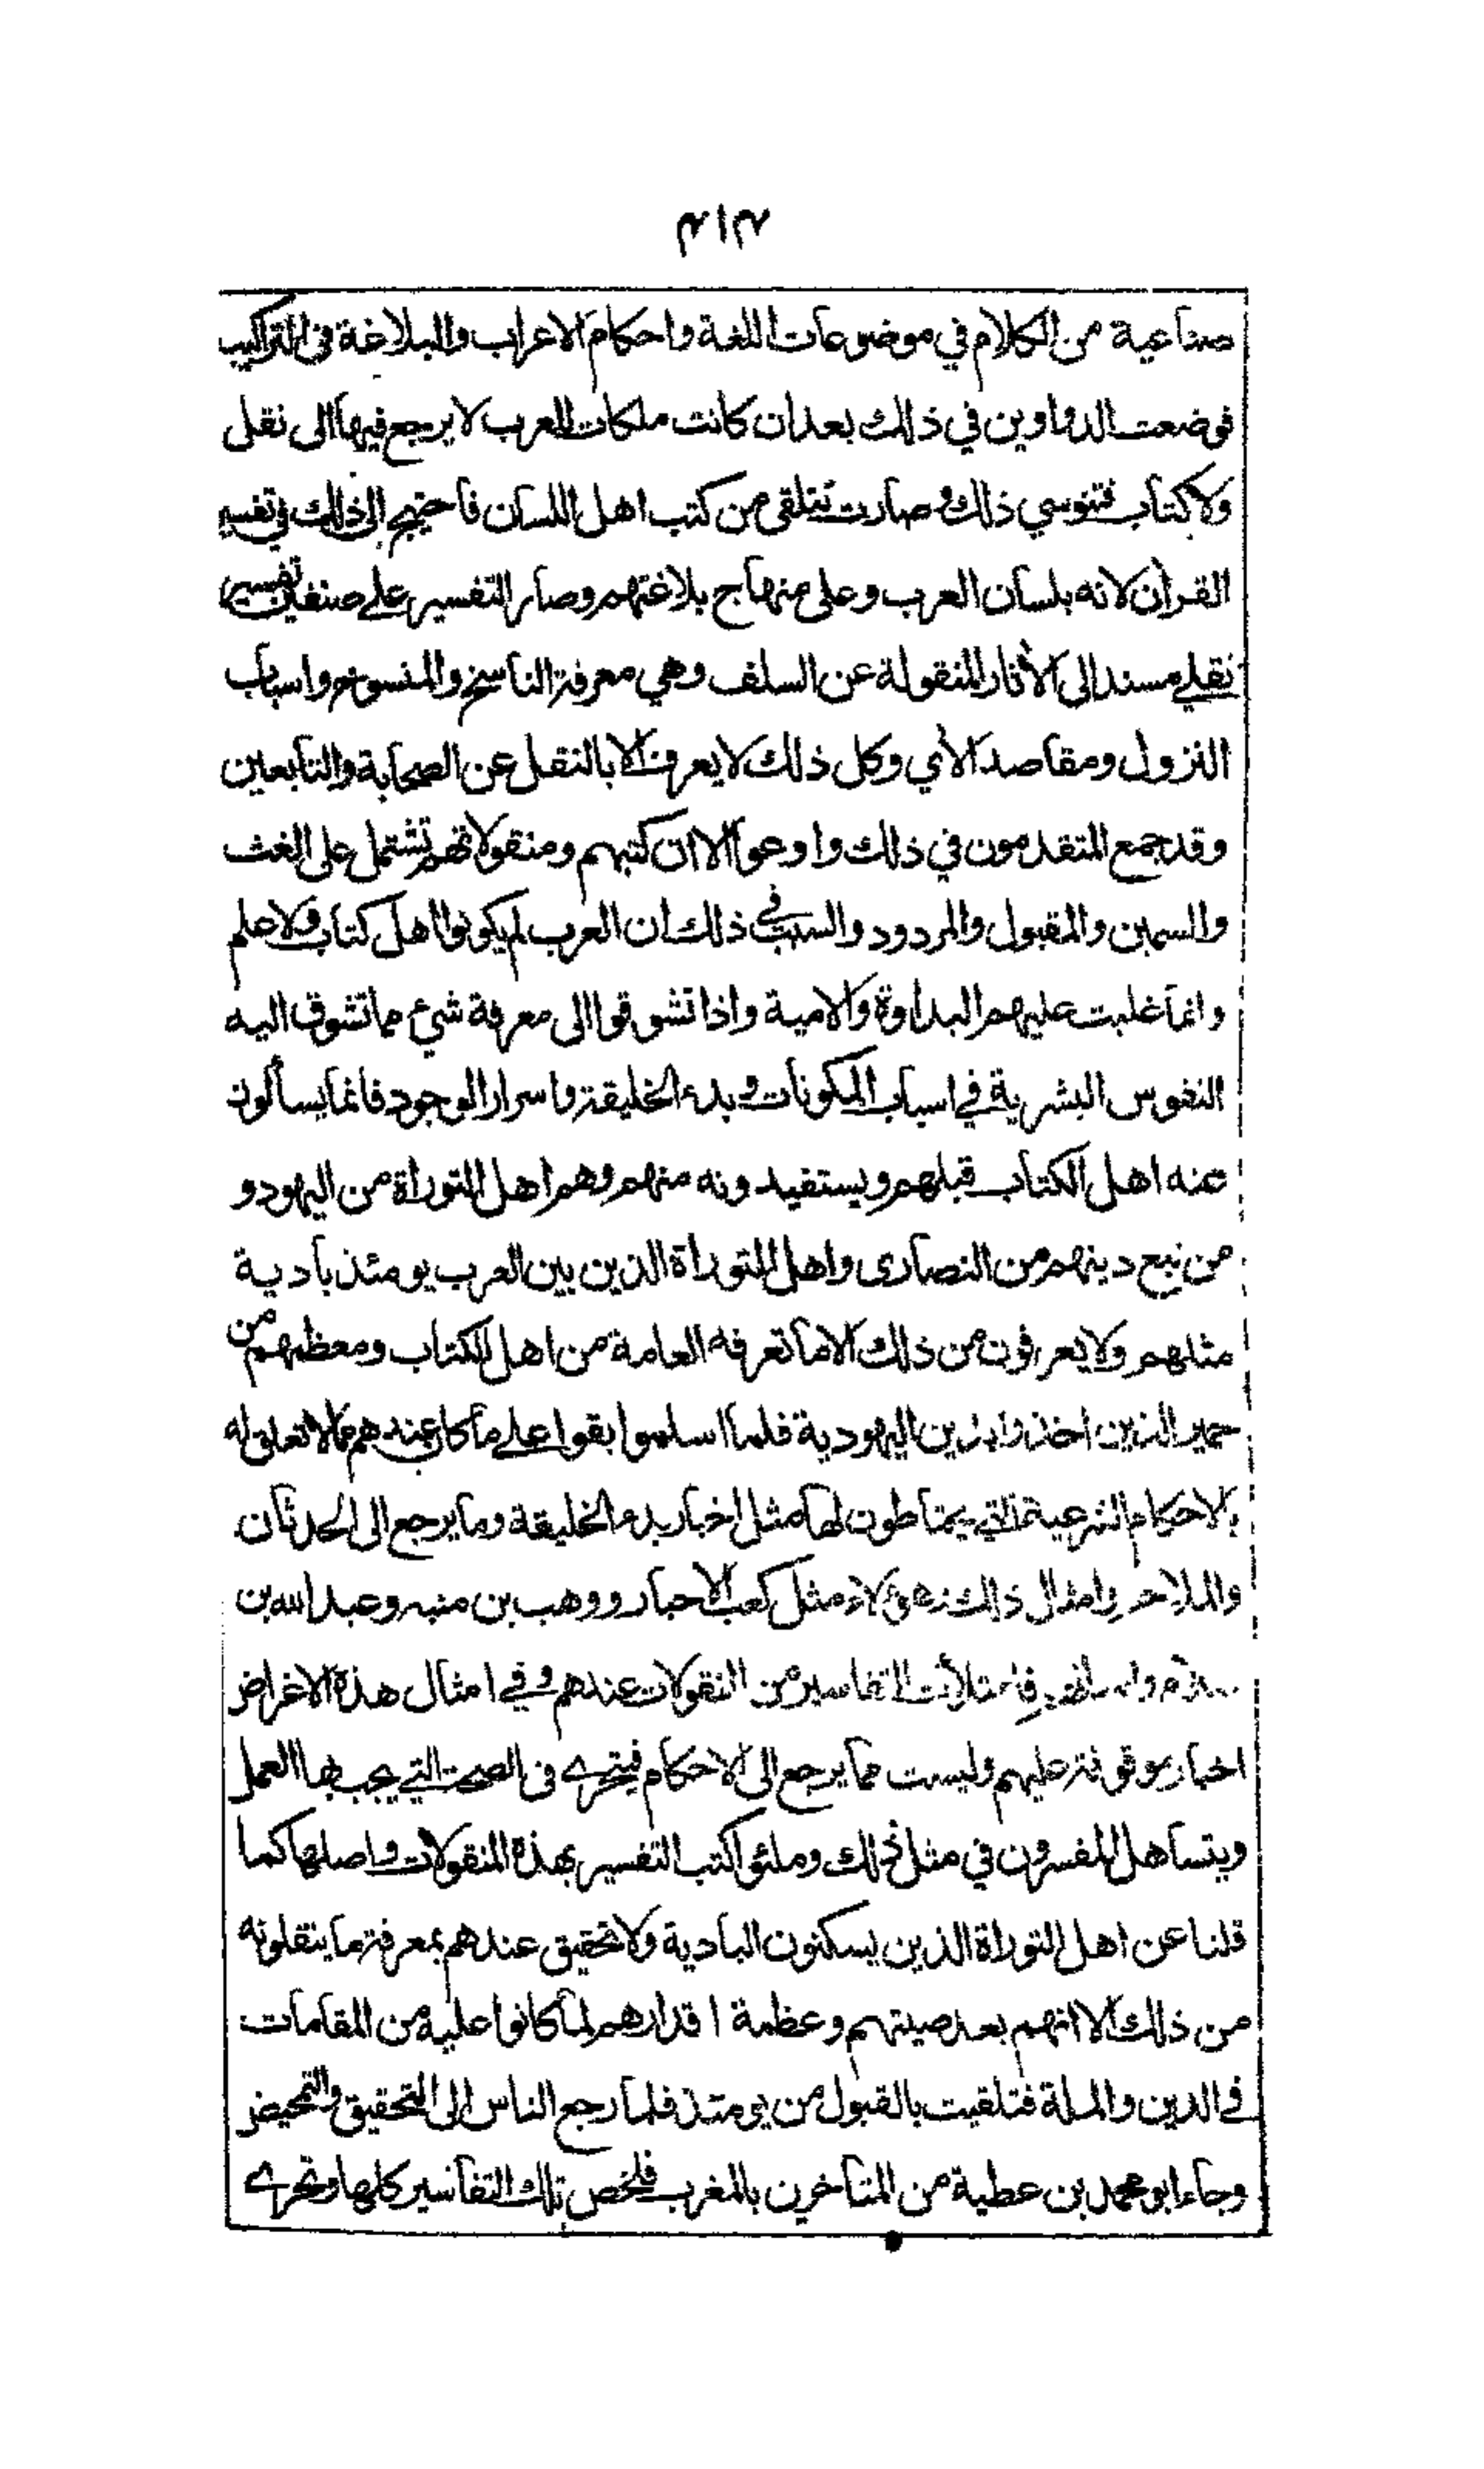 ٣١٣
صناعية من الكلام في موضوعات اللغة واحكام الاعراب والبلاغة في التراكيب
فوضعت الدواوين في ذلك بعدان كانت ملكات للعرب لا يرجع فيها الى نقل
ولا كتاب فتنوسي ذلك وصارت تتلقى من كتب اهل اللسان فاحتيج الى ذلك في تفسير
القرأن لانه بلسان العرب وعلى منهاج بلاغتهم وصار التفسير على صنفين تفسير
نقلي مسند الى الأثار المنقولة عن السلف وهي معرفة الناسخ والمنسوخ واسباب
النزول ومقاصد الأي وكل ذلك لا يعرف الا بالنقل عن الصحابة والتابعين
وقد جمع المتقدمون في ذلك واوعوا الا ان كتبهم ومنقولاتهم تشتمل على الغث
والسمين والمقبول والمردود والسبب في ذلك ان العرب لم يكونوا اهل كتاب ولا علم
وانما غلبت عليهم البداوة والامية واذا تشوقوا الى معرفة شئ مما تشوق اليه
النفوس البشرية في اسباب المكونات وبدء الخليقة واسرار الوجود فانما يسألون
عنه اهل الكتاب قبلهم ويستفيدونه منهم وهم اهل التوراة من اليهود و
من تبع دينهم من النصارى واهل التوراة الذين بين العرب يومئذ بادية
مثلهم ولا يعرفون من ذلك الا ما تعرفه العامة من اهل الكتاب ومعظمهم من
حمير الذين اخذوا بدين اليهودية فلما اسلموا بقوا على ما كان عندهم مما لا تعلق له
بالاحكام الشرعية التي يحتاطون لها مثل اخبار بدء الخليقة وما يرجع الى الحدثان
والملاحم وامثال ذلك وهؤلاء مثل كعب الاحبار ووهب بن منبه وعبد الله بن
سلام وامثالهم فامتلأت التفاسير من المنقولات عندهم وفي امثال هذه الاغراض
اخبار موقوفة عليهم وليست مما يرجع الى الاحكام فيتحرى في الصحة التي يجب بها العمل
ويتساهل المفسرون في مثل ذلك وملئوا كتب التفسير بهذه المنقولات واصلها كما
قلنا عن اهل التوراة الذين يسكنون البادية ولا تحقيق عندهم بمعرفة ما ينقلونه
من ذلك الا انهم بعد صيتهم وعظمة اقدارهم لما كانوا عليه من المقامات
في الدين والملة فتلقيت بالقبول من يومئذ فلما رجع الناس الى التحقيق والتمحيض
وجاء ابو محمد بن عطية من المتأخرين بالمغرب فلخص تلك التفاسير كلها وتحرى